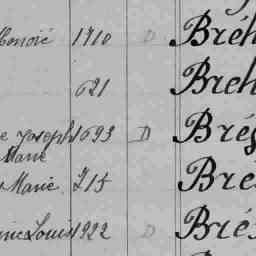 1710 D Bréh
621 Breh
e Joseph 1693 D Brég
Marie
Marie 715 Bré
Louis 1922 D Brés